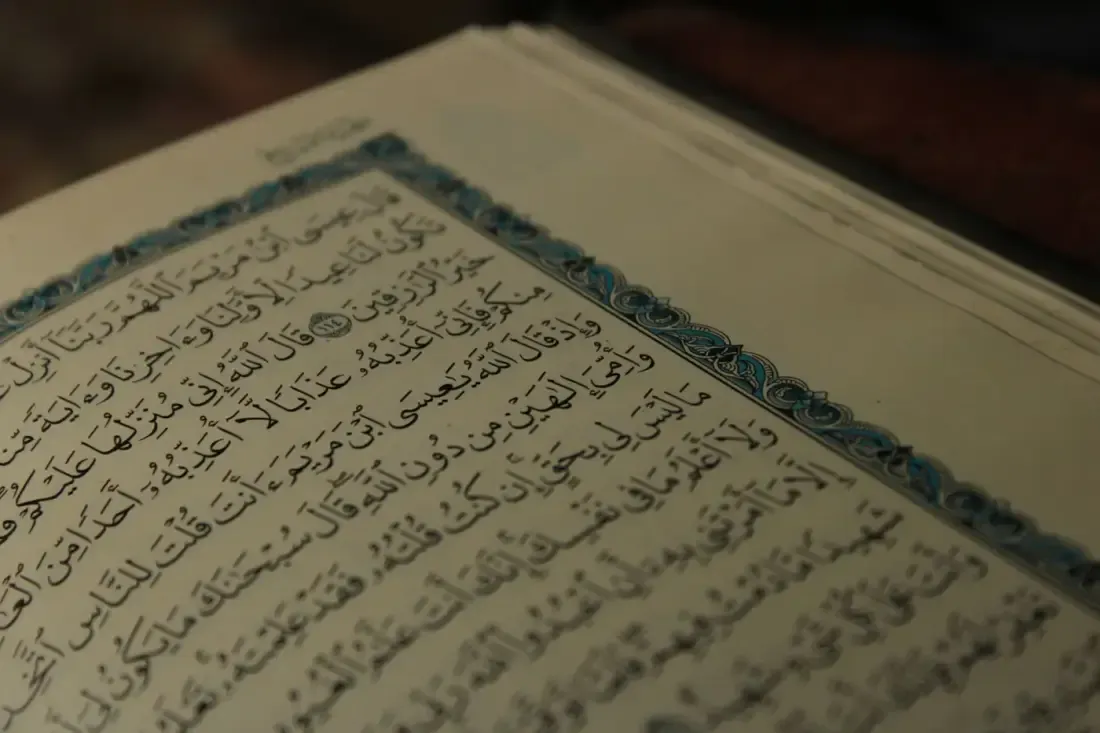 قَالَ عِيسَى ٱبْنُ مَرْيَمَ ٱللَّهُمَّ رَبَّنَآ أَنزِلْ
تَكُونُ لَنَا عِيدًا لِّأَوَّلِنَا وَءَاخِرِنَا وَءَايَةً مِّن
خَيْرُ ٱلرَّٰزِقِينَ ١١٤ قَالَ ٱللَّهُ إِنِّى مُنَزِّلُهَا عَلَيْكُمْ
مِنكُمْ فَإِنِّىٓ أُعَذِّبُهُۥ عَذَابًا لَّآ أُعَذِّبُهُۥٓ أَحَدًا مِّنَ ٱلْعَ
وَإِذْ قَالَ ٱللَّهُ يَٰعِيسَى ٱبْنَ مَرْيَمَ ءَأَنتَ قُلْتَ لِلنَّاسِ ٱتَّخِذُ
وَأُمِّىَ إِلَٰهَيْنِ مِن دُونِ ٱللَّهِ قَالَ سُبْحَٰنَكَ مَا يَكُونُ لِىٓ أَ
مَا لَيْسَ لِى بِحَقٍّ إِن كُنتُ قُلْتُهُۥ فَقَدْ عَلِمْتَهُۥ تَعْلَمُ
وَلَآ أَعْلَمُ مَا فِى نَفْسِكَ إِنَّكَ أَنتَ عَلَّٰمُ ٱلْغُيُو
إِلَّا مَآ أَمَرْتَنِى بِهِۦٓ أَنِ ٱعْبُدُوا۟ ٱللَّهَ رَبِّى
شَهِيدًا مَّا دُمْتُ فِيهِمْ فَلَمَّا
وَأَنتَ عَلَىٰ كُلِّ شَىْءٍ شَهِيدٌ